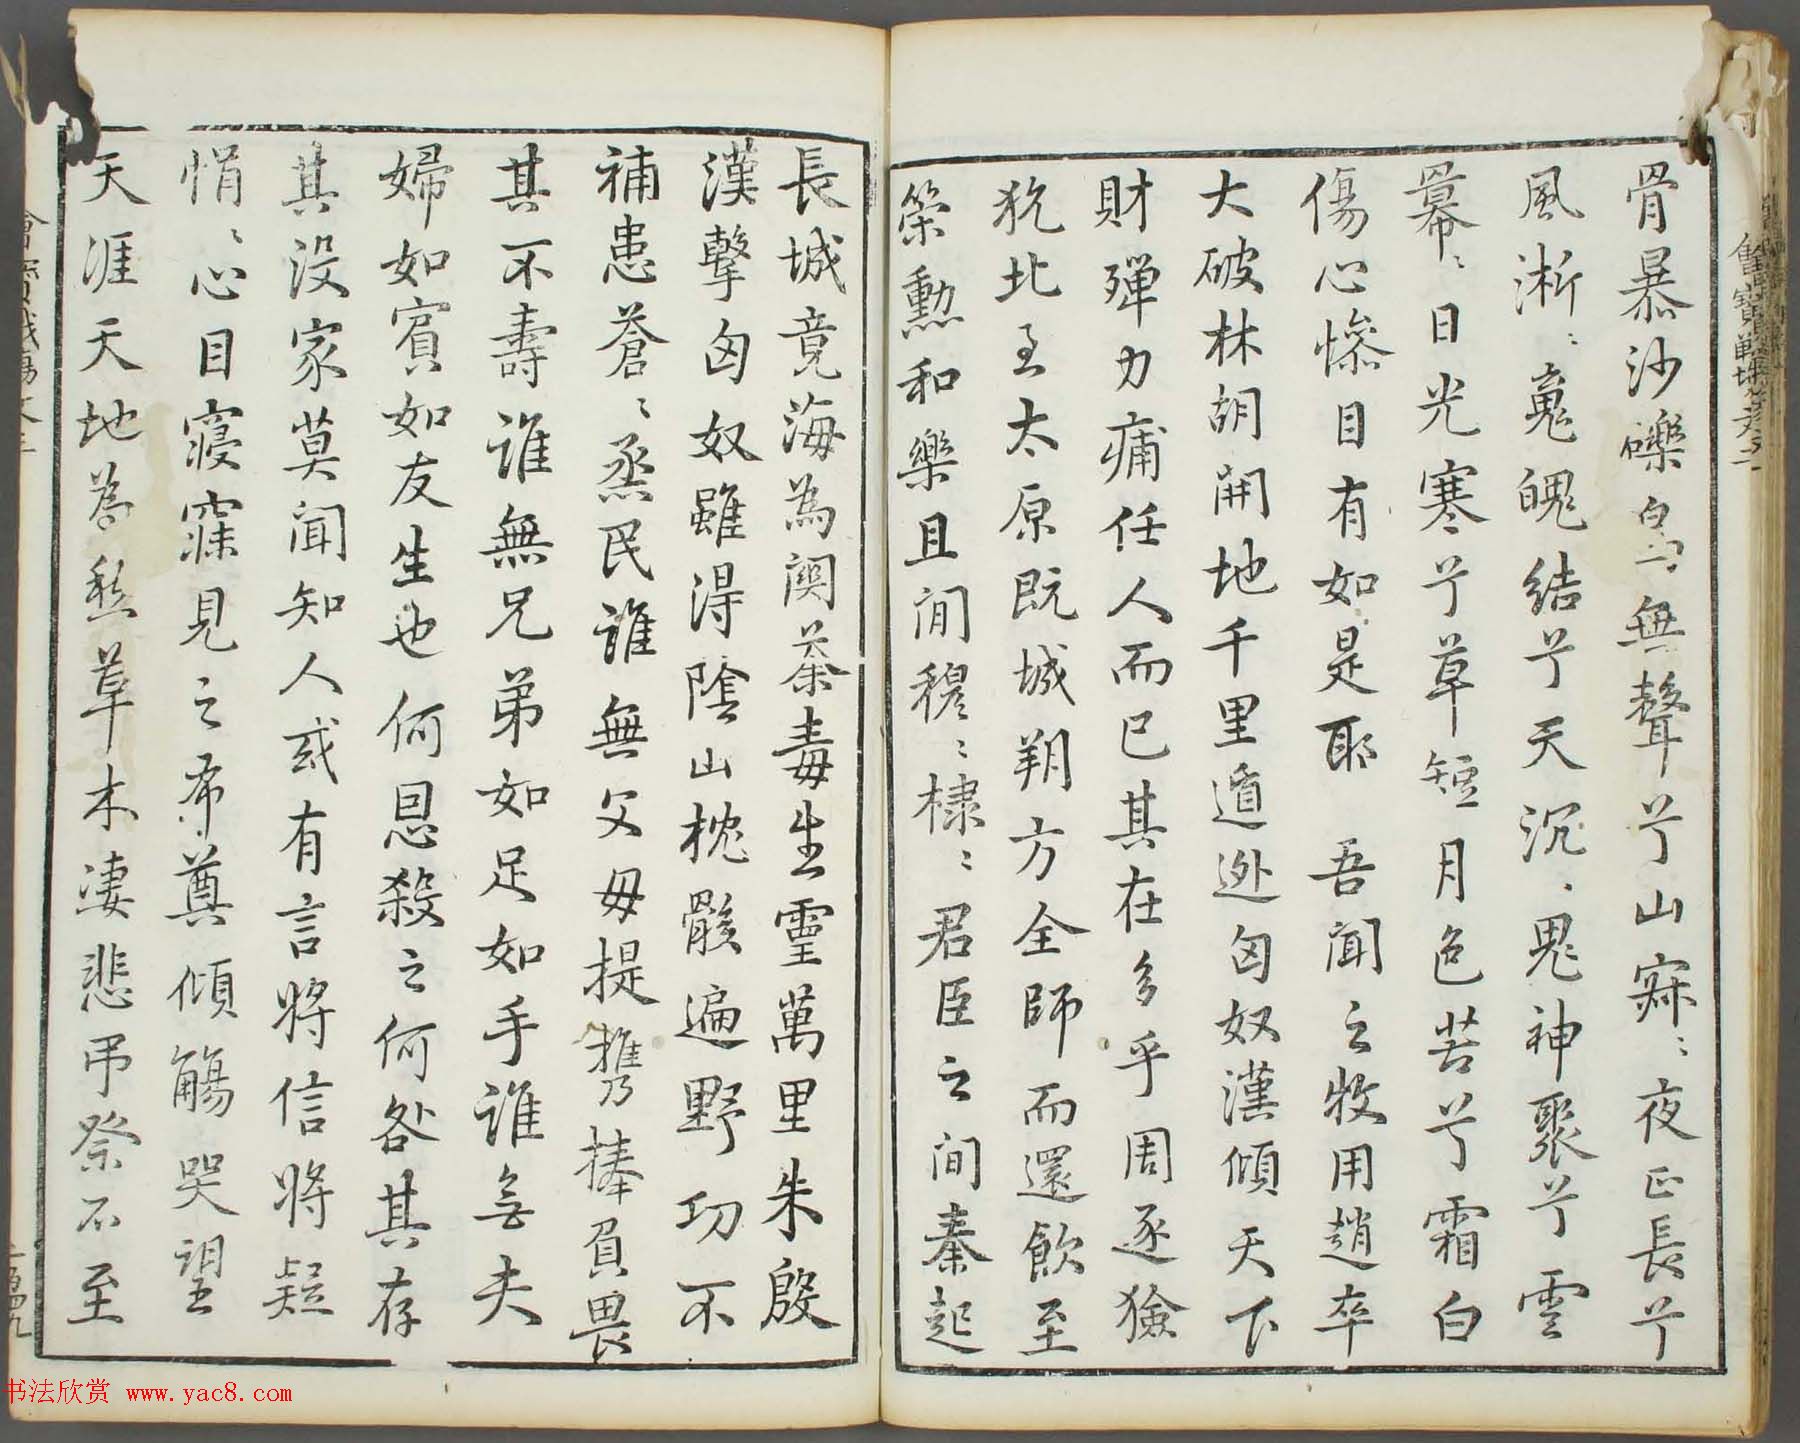 骨暴沙礫鳥無聲兮山寂〻夜正長兮
風淅〻魂魄結兮天沉〻鬼神聚兮雲
冪〻日光寒兮草短月色苦兮霜白
傷心慘目有如是耶 吾聞之牧用趙卒
大破林胡開地千里遁逃匈奴漢傾天下
財殫力痡任人而已其在多乎周逐獫
狁北至太原既城朔方全師而還飲至
策勲和樂且閒穆〻棣〻君臣之間秦起
長城竟海為關荼毒生靈萬里朱殷
漢擊匈奴雖得陰山枕骸遍野功不
補患蒼〻烝民誰無父母提携乃捧負畏
其不壽誰無兄弟如足如手誰無夫
婦如賓如友生也何恩殺之何咎其存
其没家莫聞知人或有言將信將疑
悁〻心目寢寐見之布奠傾觴哭望
天涯天地為愁草木凄悲吊祭不至
书法欣赏 www.yac8.com